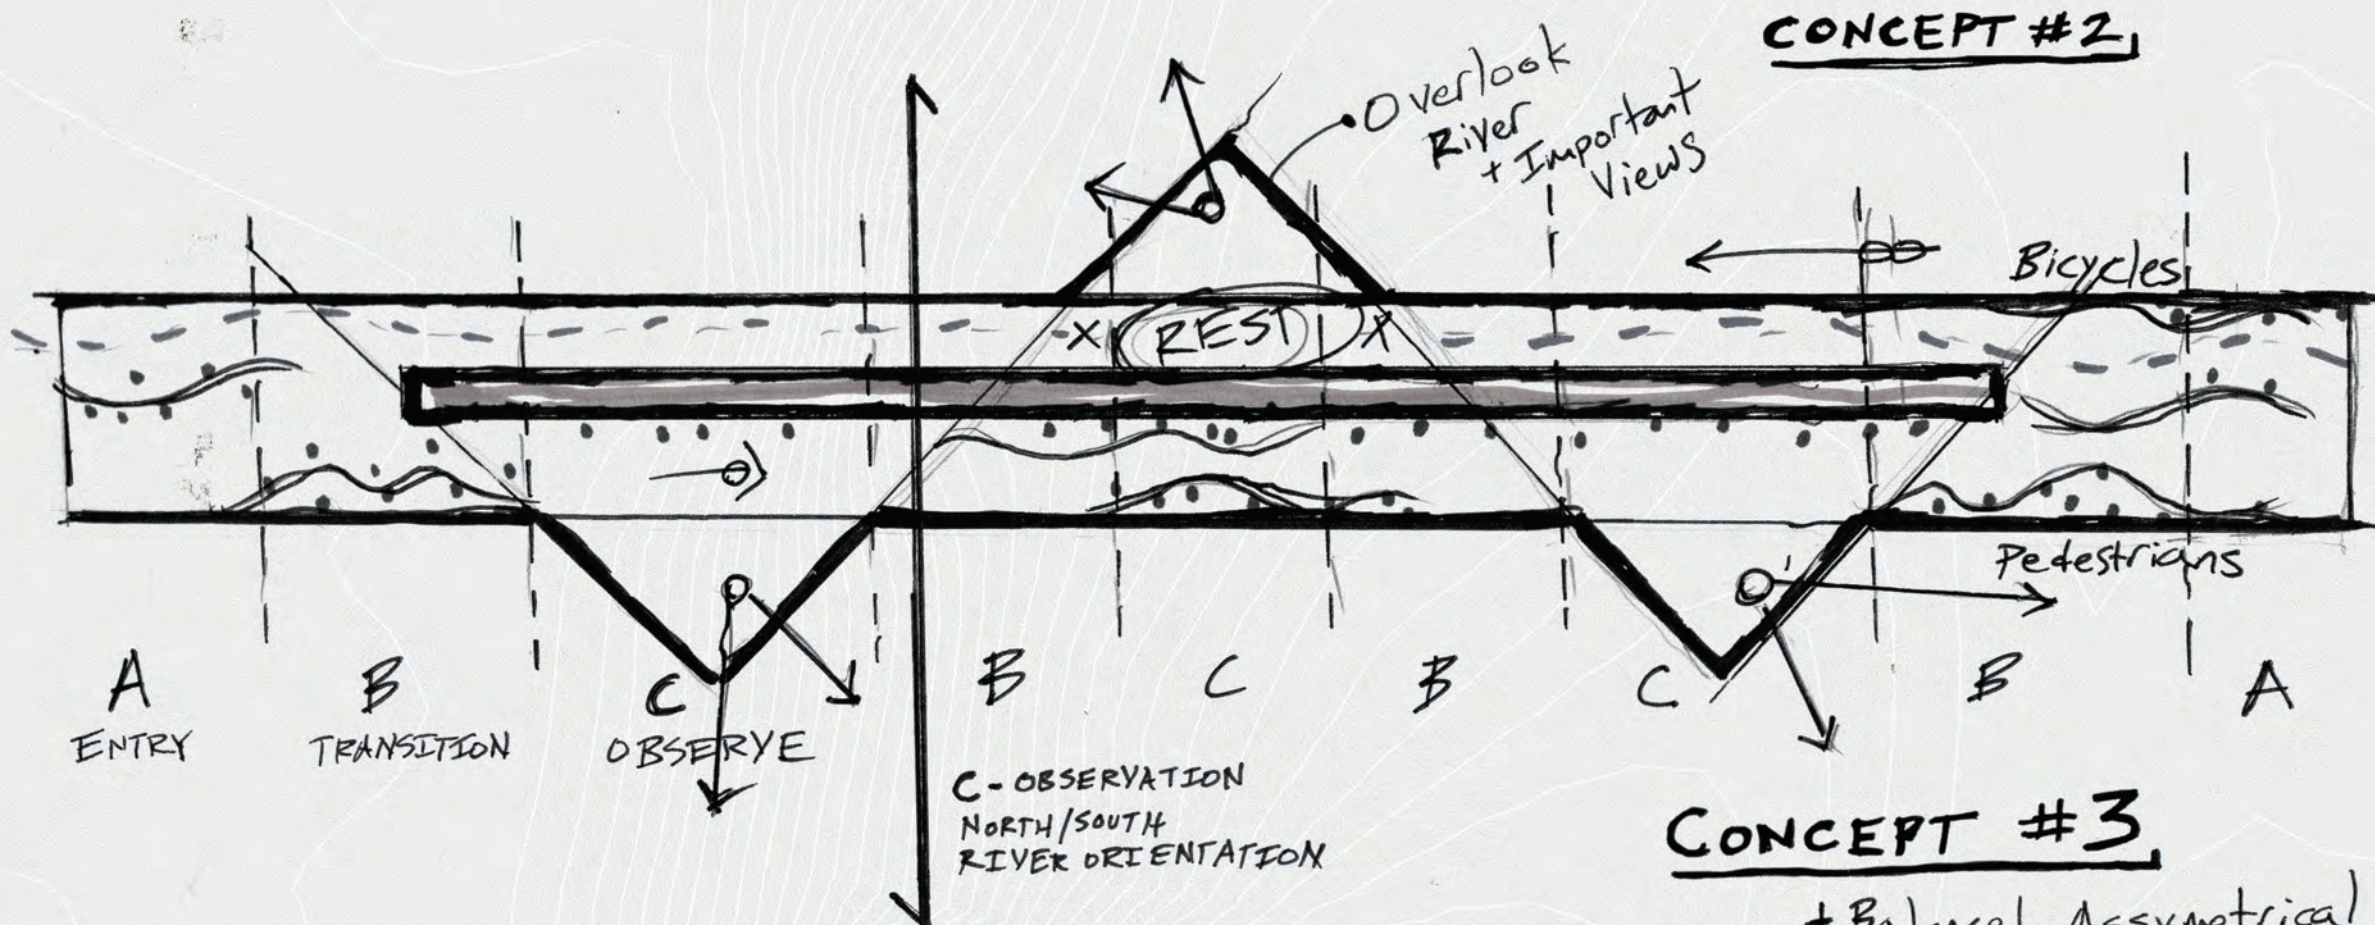 CONCEPT #2
Overlook
River
+ Important
Views
Bicycles
X REST X
Pedestrians
A B C B C B C B A
ENTRY TRANSITION OBSERVE
C - OBSERVATION
NORTH/SOUTH
RIVER ORIENTATION
CONCEPT #3
+ Balanced Assymetrical